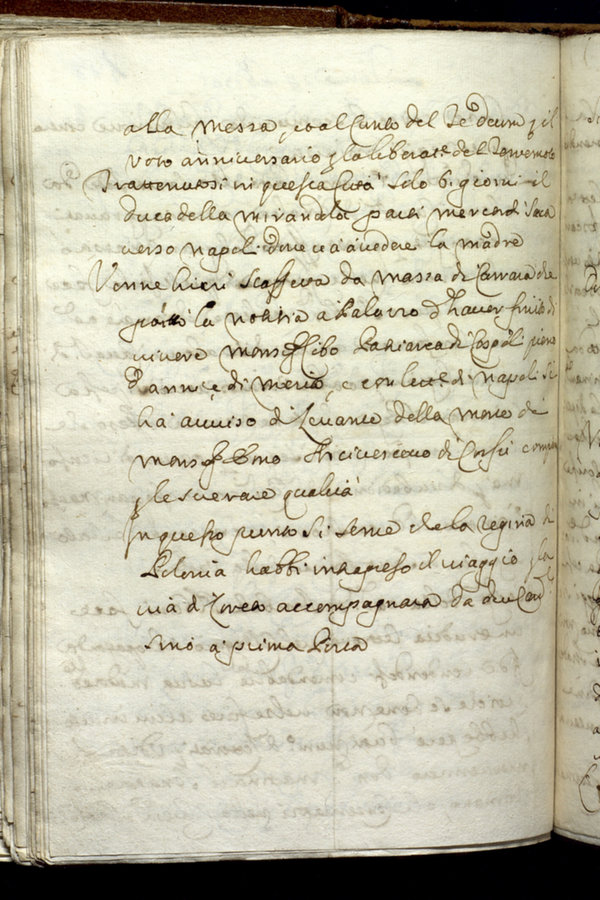 alla messa, et al Canto del Te Deum p il
voto anniversario p la liberat.e del Terremoto
Trattenutosi in questa Città solo 6. giorni il
Duca della Mirandola partì mercordì sera
verso Napoli dove va a vedere la madre
Venne hieri staffetta da Massa di Carrara che
portò la notitia a Palazzo d'haver finito di
vivere Mons.r Cibo Patriarca di Cospoli pieno
d'anni, e di merito, e con lett.e di Napoli si
ha avviso di Levante della morte di
Mons.r Arcivescovo di Corfù
p le sue rare qualità
In questo punto si sente che la Regina di
Polonia habbi intrapreso il viaggio p la
via di Loreto accompagnata da due Card.li
sino a prima Porta